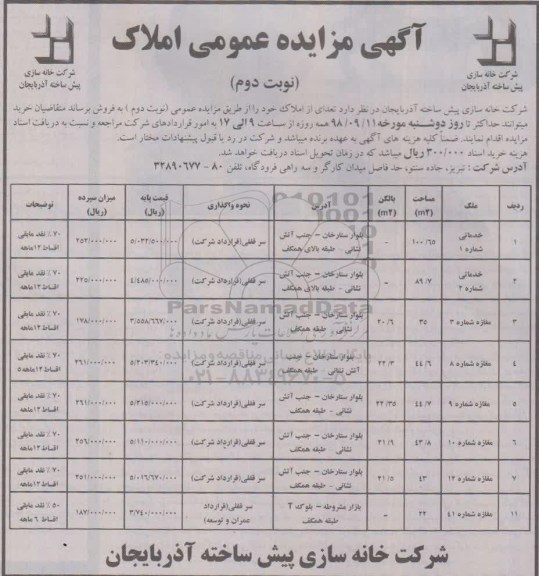 آگهی مزایده عمومی املاک
(نوبت دوم)
شرکت خانه سازی
پیش ساخته آذربایجان
شرکت خانه سازی
پیش ساخته آذربایجان
شرکت خانه سازی پیش ساخته آذربایجان در نظر دارد تعدای از املاک خود را از طریق مزایده عمومی (نوبت دوم) به فروش برساند متقاضیان خرید
میتوانند حداکثر تا روز دوشنبه مورخه ۹۸/۰۹/۱۱ همه روزه از ساعت ۹ الی ۱۷ به امور قراردادهای شرکت مراجعه و نسبت به دریافت اسناد
مزایده اقدام نمایند. ضمناً کلیه هزینه های آگهی به عهده برنده میباشد و شرکت در رد یا قبول پیشنهادات مختار است.
هزینه خرید اسناد ۳۰۰/۰۰۰ ریال میباشد که در زمان تحویل اسناد دریافت خواهد شد.
آدرس شرکت : تبریز، جاده سنتو، حد فاصل میدان کارگر و سه راهی فرودگاه، تلفن ۸۰ - ۳۲۸۹۰۶۷۷
ردیف ملک مساحت (m۲) بالکن (m۲) آدرس نحوه واگذاری قیمت پایه (ریال) میزان سپرده (ریال) توضیحات
۱ خدماتی شماره ۱ ۱۰۰/۶۵ - بلوار ستارخان - جنب آتش نشانی - طبقه بالای همکف سر قفلی(قرارداد شرکت) ۵/۰۳۲/۵۰۰/۰۰۰ ۲۵۲/۰۰۰/۰۰۰ ۷۰٪ نقد مابقی اقساط ۱۲ماهه
۲ خدماتی شماره ۲ ۸۹/۷ - بلوار ستارخان - جنب آتش نشانی - طبقه بالای همکف سر قفلی(قرارداد شرکت) ۴/۴۸۵/۰۰۰/۰۰۰ ۲۲۵/۰۰۰/۰۰۰ ۷۰٪ نقد مابقی اقساط ۱۲ماهه
۳ مغازه شماره ۳ ۳۵ ۲۰/۶ بلوار ستارخان - جنب آتش نشانی - طبقه همکف سر قفلی(قرارداد شرکت) ۳/۵۵۸/۶۶۷/۰۰۰ ۱۷۸/۰۰۰/۰۰۰ ۷۰٪ نقد مابقی اقساط ۱۲ماهه
۴ مغازه شماره ۸ ۴۴/۶ ۲۲/۳ بلوار ستارخان - جنب آتش نشانی - طبقه همکف سر قفلی(قرارداد شرکت) ۵/۲۰۳/۳۴۰/۰۰۰ ۲۶۱/۰۰۰/۰۰۰ ۷۰٪ نقد مابقی اقساط ۱۲ماهه
۵ مغازه شماره ۹ ۴۴/۷ ۲۲/۳۵ بلوار ستارخان - جنب آتش نشانی - طبقه همکف سر قفلی(قرارداد شرکت) ۵/۲۱۵/۰۰۰/۰۰۰ ۲۶۱/۰۰۰/۰۰۰ ۷۰٪ نقد مابقی اقساط ۱۲ماهه
۶ مغازه شماره ۱۰ ۴۳/۸ ۲۱/۹ بلوار ستارخان - جنب آتش نشانی - طبقه همکف سر قفلی(قرارداد شرکت) ۵/۱۱۰/۰۰۰/۰۰۰ ۲۵۶/۰۰۰/۰۰۰ ۷۰٪ نقد مابقی اقساط ۱۲ماهه
۷ مغازه شماره ۱۲ ۴۳ ۲۱/۵ بلوار ستارخان - جنب آتش نشانی - طبقه همکف سر قفلی(قرارداد شرکت) ۵/۰۱۶/۶۷۰/۰۰۰ ۲۵۱/۰۰۰/۰۰۰ ۷۰٪ نقد مابقی اقساط ۱۲ماهه
۱۱ مغازه شماره ۴۱ ۲۲ - بازار مشروطه - بلوک T طبقه همکف سر قفلی(قرارداد عمران و توسعه) ۳/۷۴۰/۰۰۰/۰۰۰ ۱۸۷/۰۰۰/۰۰۰ ۵۰٪ نقد مابقی اقساط ۶ ماهه
ParsNamadData
۰۲۱-۸۸۳۴۹۶۷۰-۵
شرکت خانه سازی پیش ساخته آذربایجان